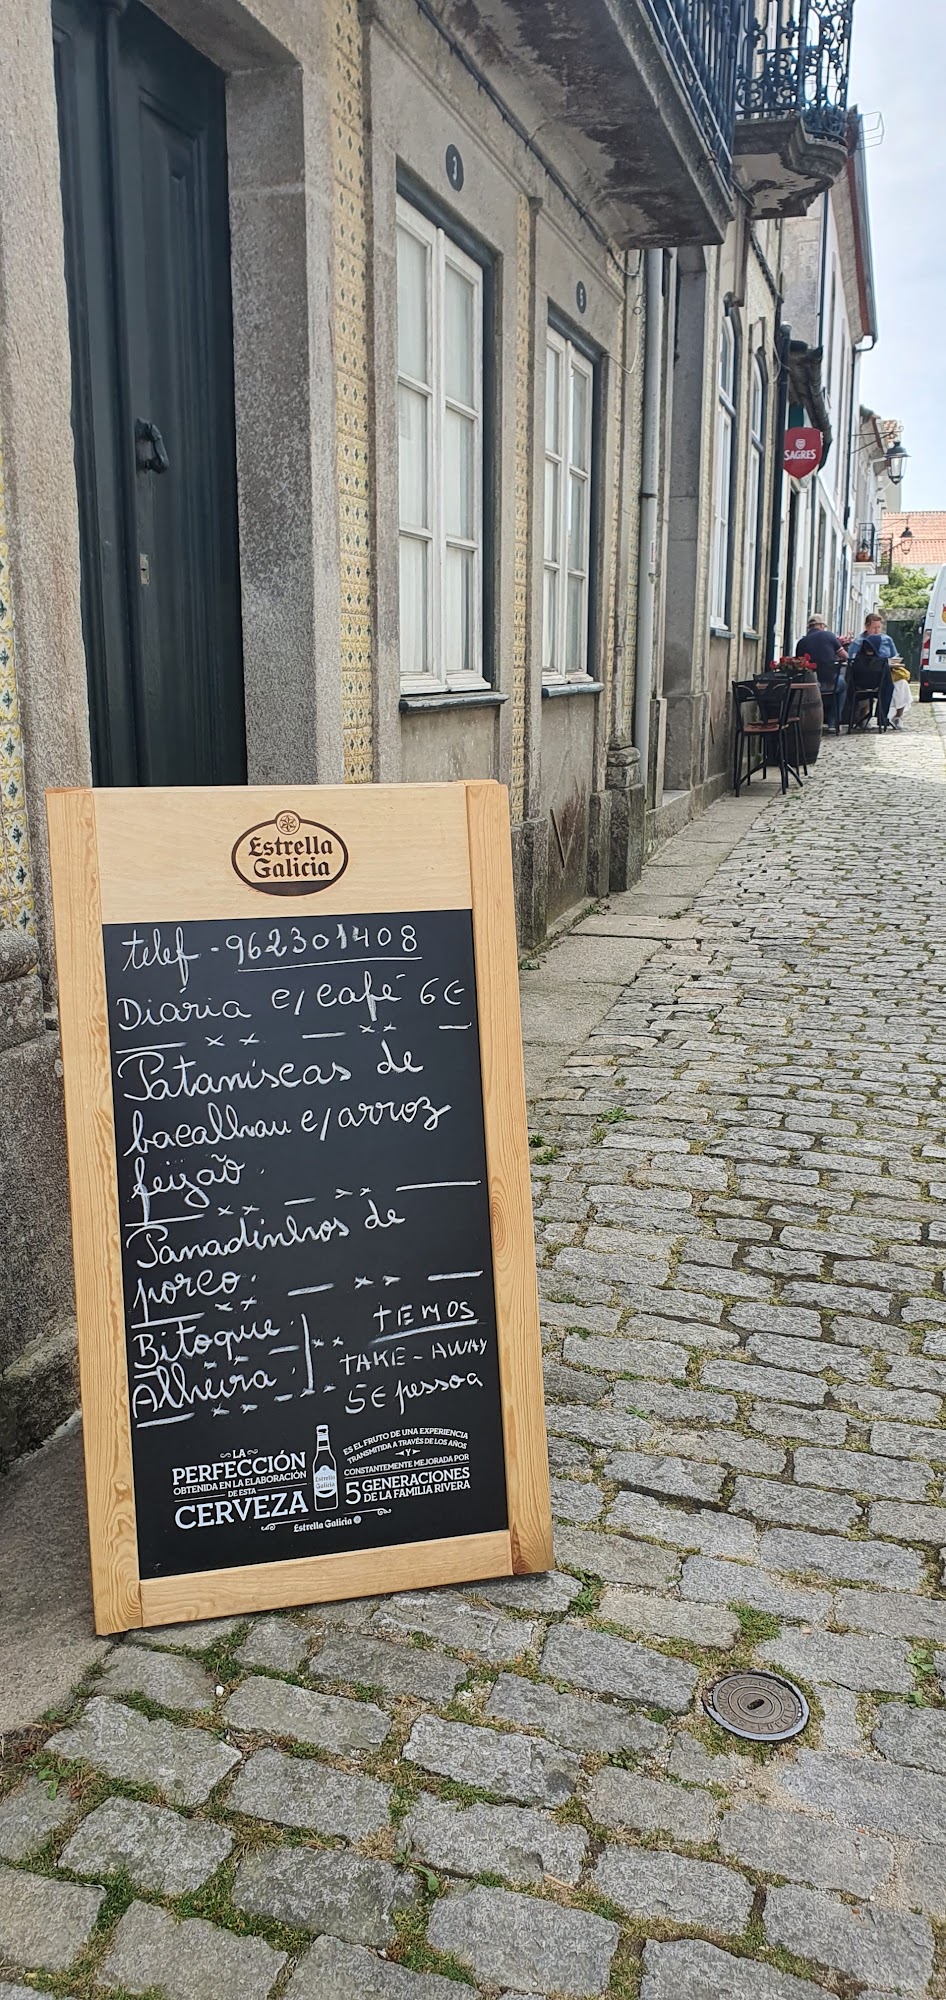 3
5
SAGRES
Estrella
Galicia
telef - 962301408
Diária c/café 6€
Pataniscas de
bacalhau c/arroz
feijão.
Panadinhos de
porco.
Bitoque
Alheira
TEMOS
TAKE-AWAY
5€ pessoa
LA
PERFECCIÓN
OBTENIDA EN LA ELABORACIÓN
DE ESTA
CERVEZA
Estrella
Galicia
ES EL FRUTO DE UNA EXPERIENCIA
TRANSMITIDA A TRAVÉS DE LOS AÑOS
Y
CONSTANTEMENTE MEJORADA POR
5 GENERACIONES
DE LA FAMILIA RIVERA
Estrella Galicia